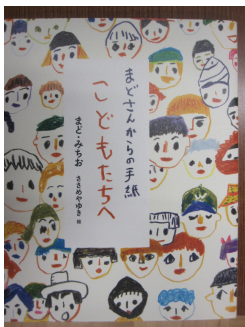 まどさんからの手紙
こどもたちへ
まど・みちお
ささめやゆき 絵